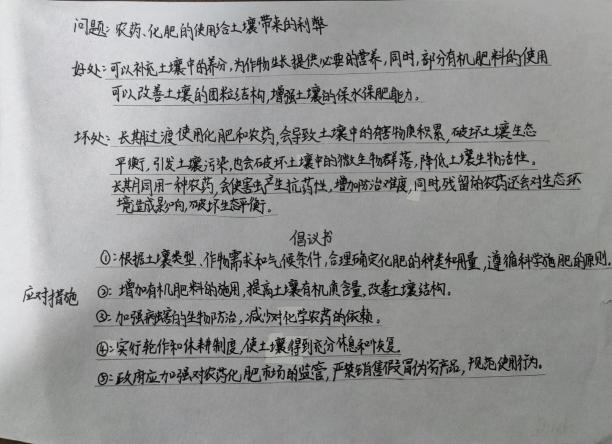 问题:农药、化肥的使用给土壤带来的利弊
好处:可以补充土壤中的养分,为作物生长提供必要的营养,同时,部分有机肥料的使用
可以改善土壤的团粒结构,增强土壤的保水保肥能力。
坏处:长期过渡使用化肥和农药,会导致土壤中的有害物质积累,破坏土壤生态
平衡,引发土壤污染,也会破坏土壤中的微生物群落,降低土壤生物活性。
长期同用一种农药,会使害虫产生抗药性,增加防治难度,同时残留的农药还会对生态环
境造成影响,破坏生态平衡。
倡议书
①:根据土壤类型、作物需求和气候条件,合理确定化肥的种类和用量,遵循科学施肥的原则.
应对措施
②:增加有机肥料的施用,提高土壤有机质含量,改善土壤结构。
③:加强病害的生物防治,减少对化学农药的依赖。
④:实行轮作和休耕制度,使土壤得到充分休息和恢复
⑤:政府应加强对农药化肥市场的监管,严禁销售假冒伪劣产品,规范使用行为。